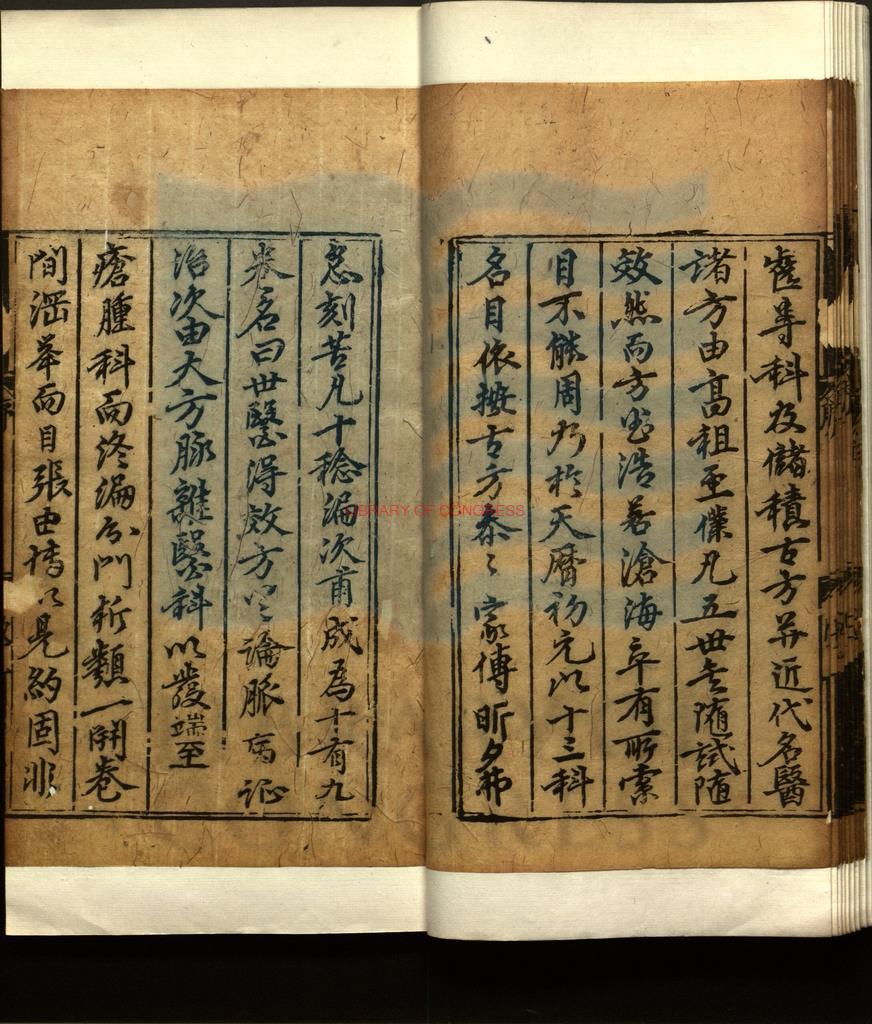 齒等科及儲積古方并近代名醫
諸方由高祖至僕凡五世矣隨試隨
效然而方書浩若滄海卒有所索
目不能周乃於天曆初元以十三科
名目依按古方叅〻家傳昕夕弗
怠刻苦凡十稔編次甫成為十有九
卷名曰世醫得效方首論脉病証
治次由大方脉雜醫科以發端至
瘡腫科而終編分門析類一開卷
間綱舉而目張由博以見約固非
LIBRARY OF CONGRESS